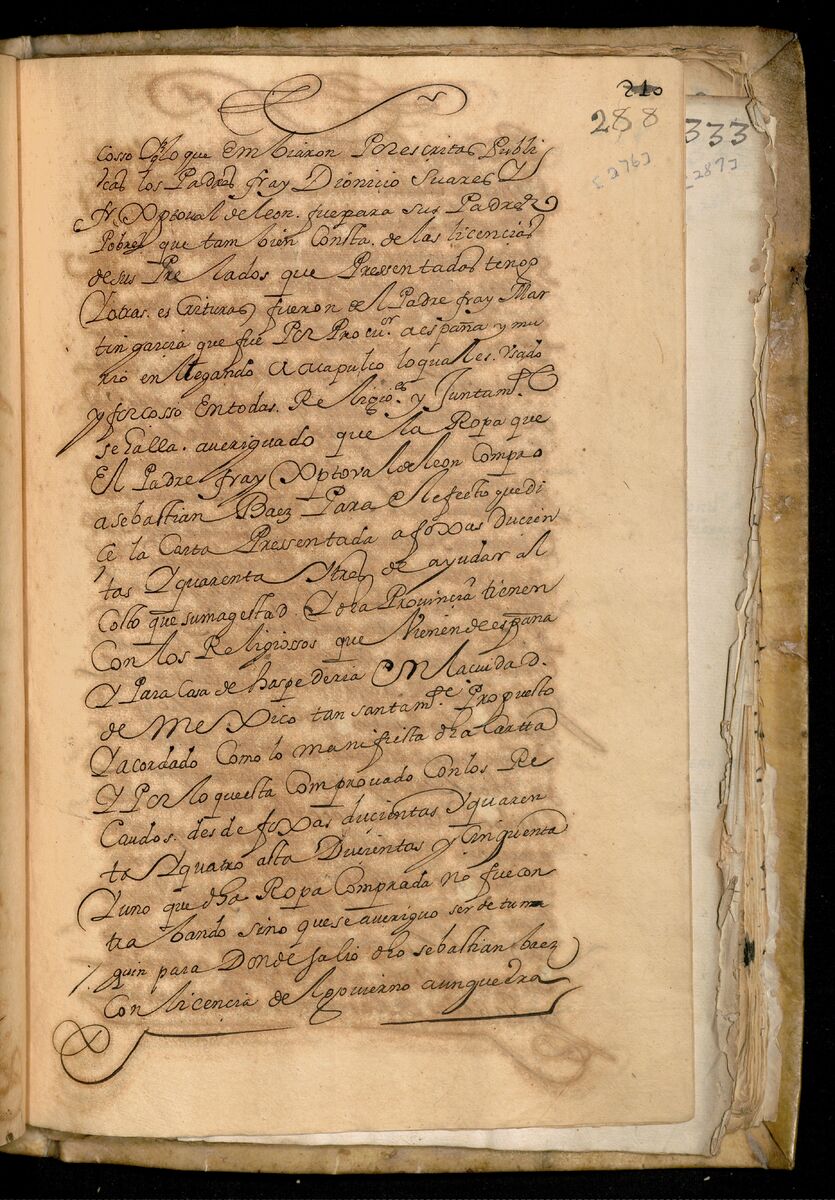 210
288
333
[276]
[287]
cosso Y lo que Embiaron Por escritas Publi
cas los Padres fray Dionicio Suares Y
fr Xptoval de leon. fue para sus Padres
Pobres que tambien Consta. de las licencias
de sus Prelados que Pressentadas tengo
Y otras. escrituras fueron del Padre fray Mar
tin garcia que fue Por Procur. a españa y mu
rio en llegando a acapulco lo qual es. Usado
y forcosso En todas. Religio.es y Juntam.te
se halla. averiguado que la Ropa que
El Padre fray Xptoval de leon Compro
a sebastian Baez Para El efecto que di
ce la Carta Pressentada a foxas Ducien
tas Y quarenta Y tres de ayudar al
Costo que sumagestad. Y dha Provincia tienen
Con los Religiossos que Vienen de españa
Y Para Casa de haspederia En la cuidad.
de MeXico tan santam.te Propuesto
Y acordado Como lo manifiesta dha Cartta
Y Por lo questa Comprovado Con los Re
Caudos. desde foxas ducientas Y quaren
ta Y quatro asta Ducientas y cinquenta
Y uno que dha Ropa Comprada no fue con
tra bando sino que se averiguo ser de tuma
quin para Donde salio dho sebastian baez
Con licencia del govierno aunque dha